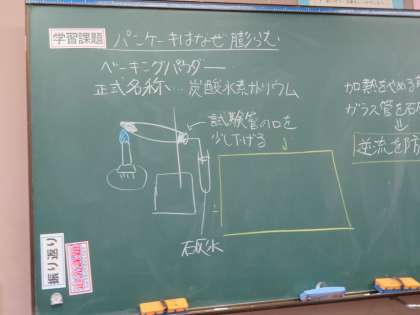 学習課題 パンケーキはなぜ膨らむ
ベーキングパウダー
正式名称…炭酸水素ナトリウム
試験管の口を
少し下げる
石灰水
加熱をやめる
ガラス管を石
逆流を防
振り返り